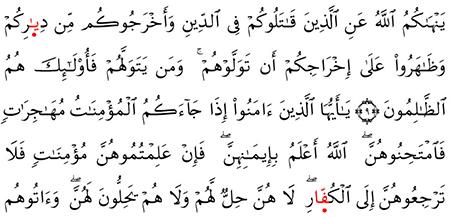 يَنْهَىٰكُمُ ٱللَّهُ عَنِ ٱلَّذِينَ قَـٰتَلُوكُمْ فِى ٱلدِّينِ وَأَخْرَجُوكُم مِّن دِيَـٰرِكُمْ
وَظَـٰهَرُوا۟ عَلَىٰٓ إِخْرَاجِكُمْ أَن تَوَلَّوْهُمْ ۚ وَمَن يَتَوَلَّهُمْ فَأُو۟لَـٰٓئِكَ هُمُ
ٱلظَّـٰلِمُونَ ﴿٩﴾ يَـٰٓأَيُّهَا ٱلَّذِينَ ءَامَنُوٓا۟ إِذَا جَآءَكُمُ ٱلْمُؤْمِنَـٰتُ مُهَـٰجِرَٰتٍ
فَٱمْتَحِنُوهُنَّ ۖ ٱللَّهُ أَعْلَمُ بِإِيمَـٰنِهِنَّ ۖ فَإِنْ عَلِمْتُمُوهُنَّ مُؤْمِنَـٰتٍ فَلَا
تَرْجِعُوهُنَّ إِلَى ٱلْكُفَّارِ ۖ لَا هُنَّ حِلٌّ لَّهُمْ وَلَا هُمْ يَحِلُّونَ لَهُنَّ ۖ وَءَاتُوهُم